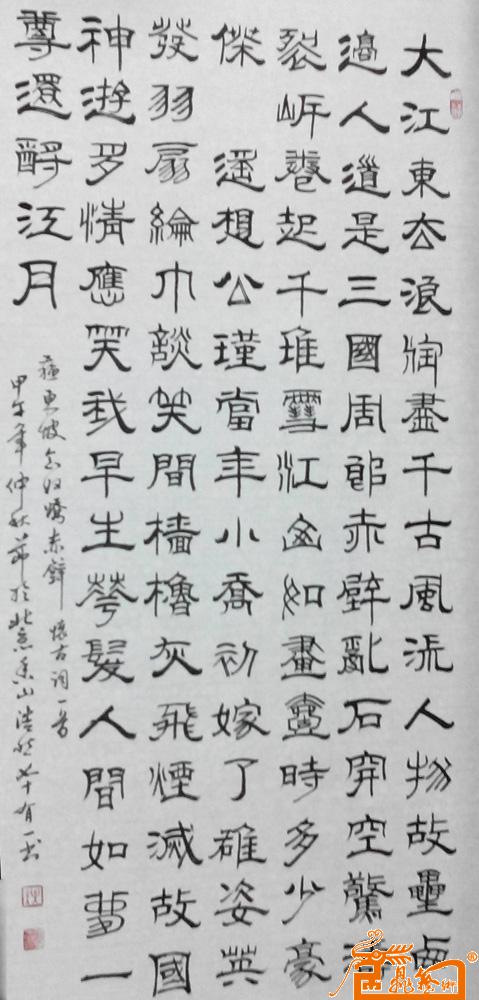 大江東去浪淘盡千古風流人物故壘西
邊人道是三國周郎赤壁亂石穿空驚濤
裂岸卷起千堆雪江山如畫壹時多少豪
傑 遥想公瑾當年小喬初嫁了雄姿英
發羽扇綸巾談笑間檣櫓灰飛煙滅故國
神遊多情應笑我早生華髮人間如夢一
尊還酹江月
蘇東坡念奴嬌赤壁懷古詞一首
甲午年仲秋節於北京香山有一书